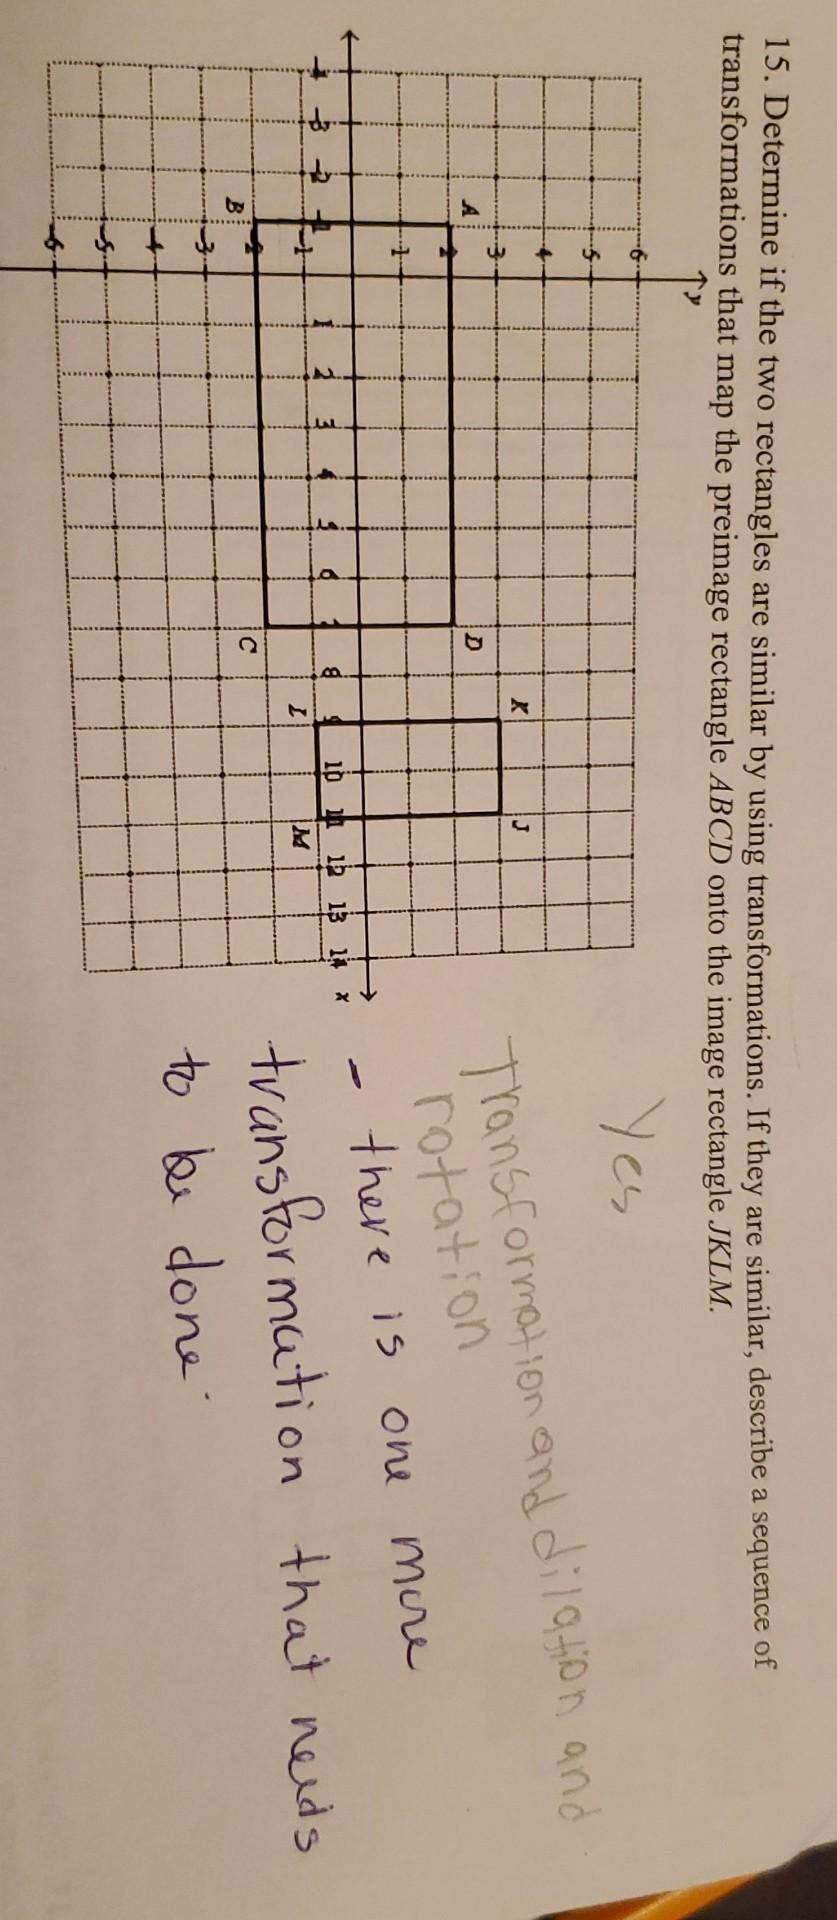 15. Determine if the two rectangles are similar by using transformations. If they are similar, describe a sequence of
transformations that map the preimage rectangle ABCD onto the image rectangle JKLM.
y
6
5
4
3
2
1
-1
-2
-3
-4
-5
-6
-4 -3 -2 -1 1 2 3 4 5 6 7 8 9 10 11 12 13 14 x
A
D
K
J
B
C
L
M
Yes
Transformation and dilation and
rotation
- there is one more
transformation that needs
to be done.